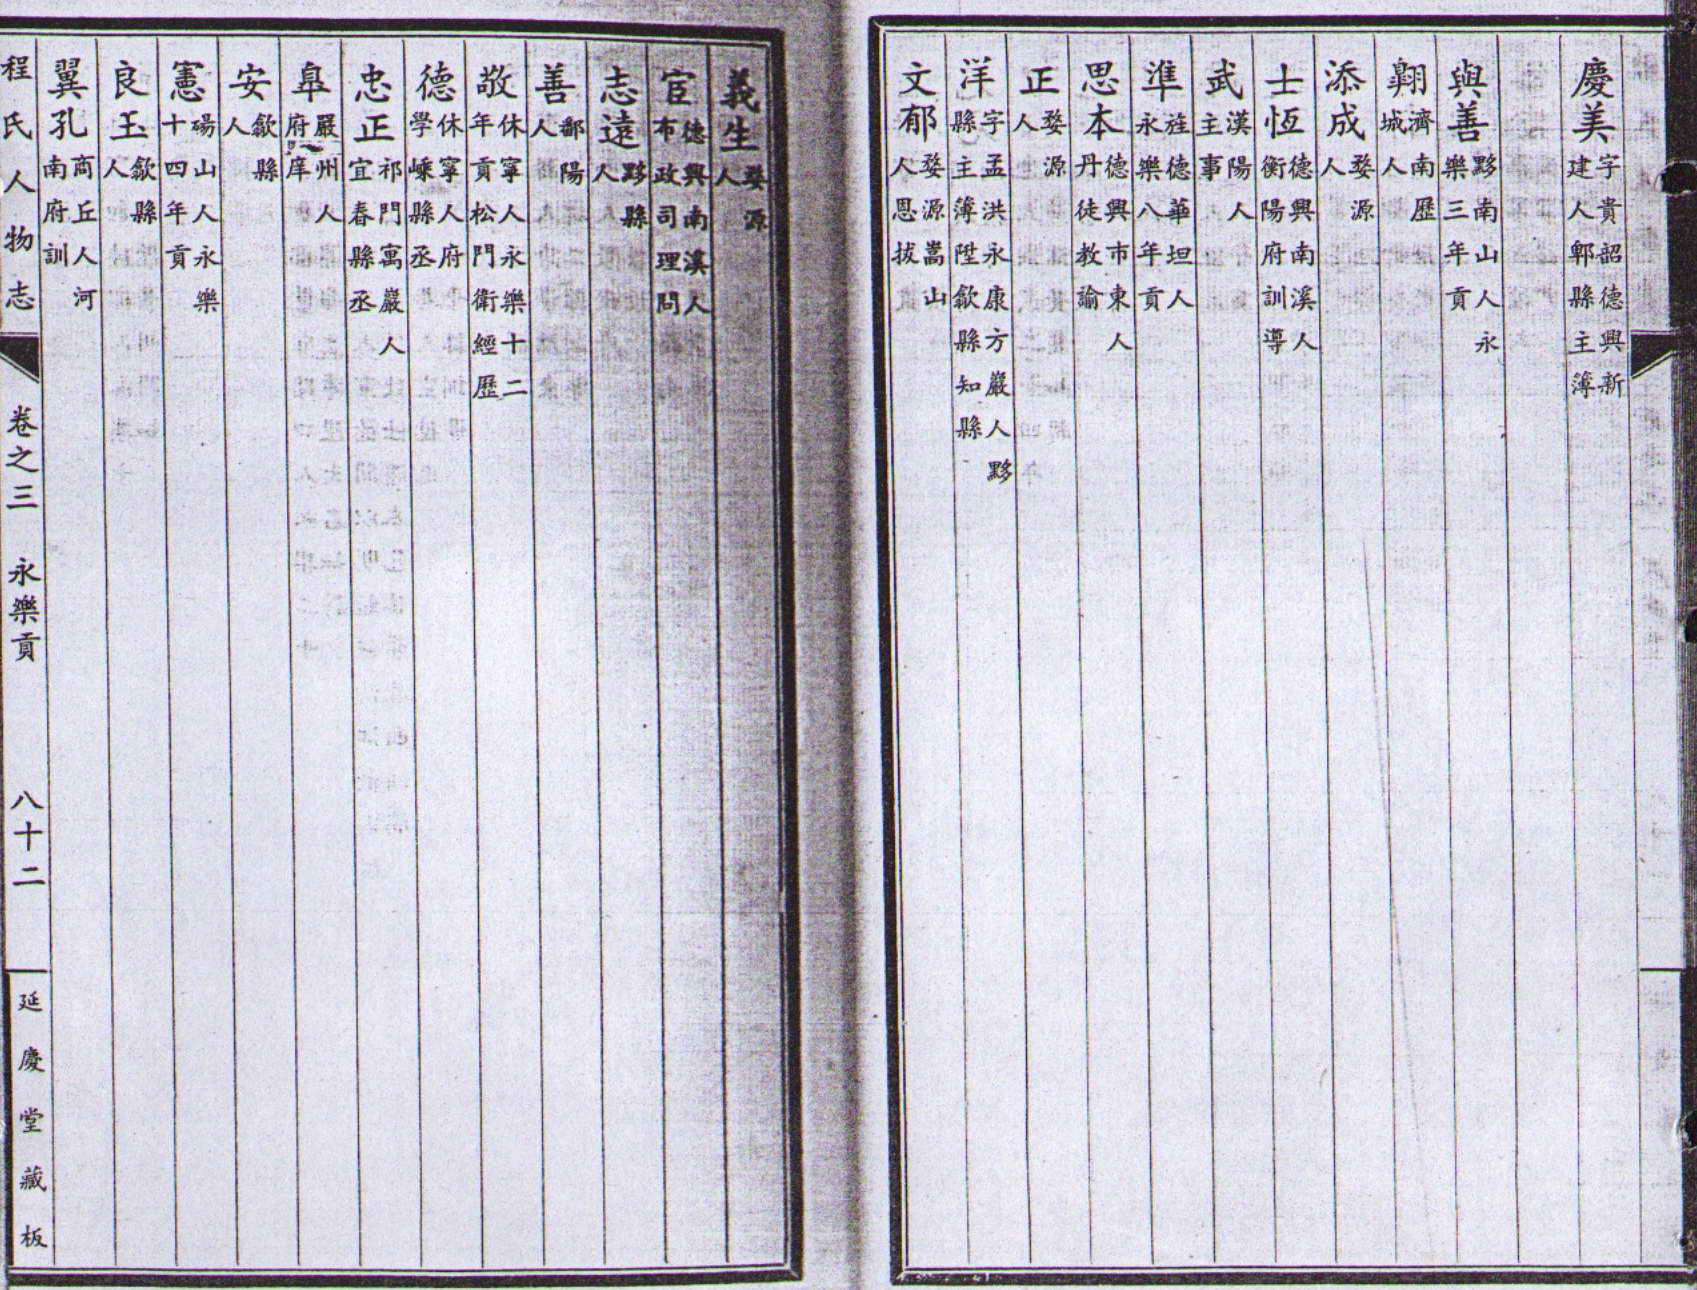 慶美 字貴韶德興新建人鄆縣主簿
與善 黟南山人永樂三年貢
翱 濟南歷城人
添成 婺源人
士恆 德興南溪人衡陽府訓導
武 漢陽人主事
準 旌德華坦人永樂八年貢
思本 德興市東人丹徒教諭
正 婺源人
洋 字孟洪永康方巖人黟縣主簿陞歙縣知縣
文郁 婺源嵩山人恩拔
義生 婺源人
宦 德興南溪人布政司理問
志遠 黟縣人
善 鄱陽人
敬 休寧人永樂十二年貢松門衛經歷
德 休寧人府學嵊縣丞
忠正 祁門寓巖人宜春縣丞
臯 嚴州人府庠
安 歙縣人
憲 碭山人永樂十四年貢
良玉 歙縣人
翼孔 商丘人河南府訓
程氏人物志 卷之三 永樂貢 八十二 延慶堂藏板